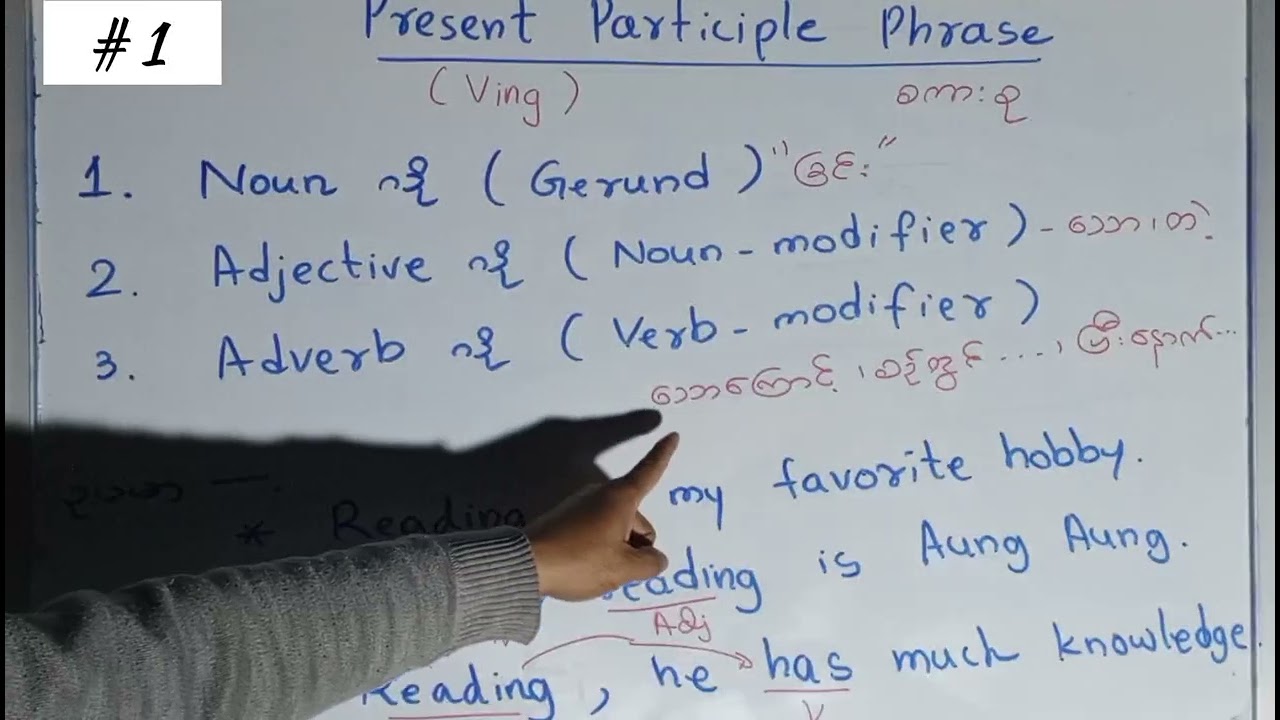 #1
Present Participle Phrase
(Ving) စကားစု
1. Noun လို့ (Gerund) "ခြင်း"
2. Adjective လို့ (Noun-modifier) - သော၊တဲ့
3. Adverb လို့ (Verb-modifier)
သောကြောင့်၊စဉ်တွင်....၊ပြီးနောက်...
ဥပမာ —.
* Reading my favorite hobby.
reading is Aung Aung.
Adj
Reading, he has much knowledge.
V